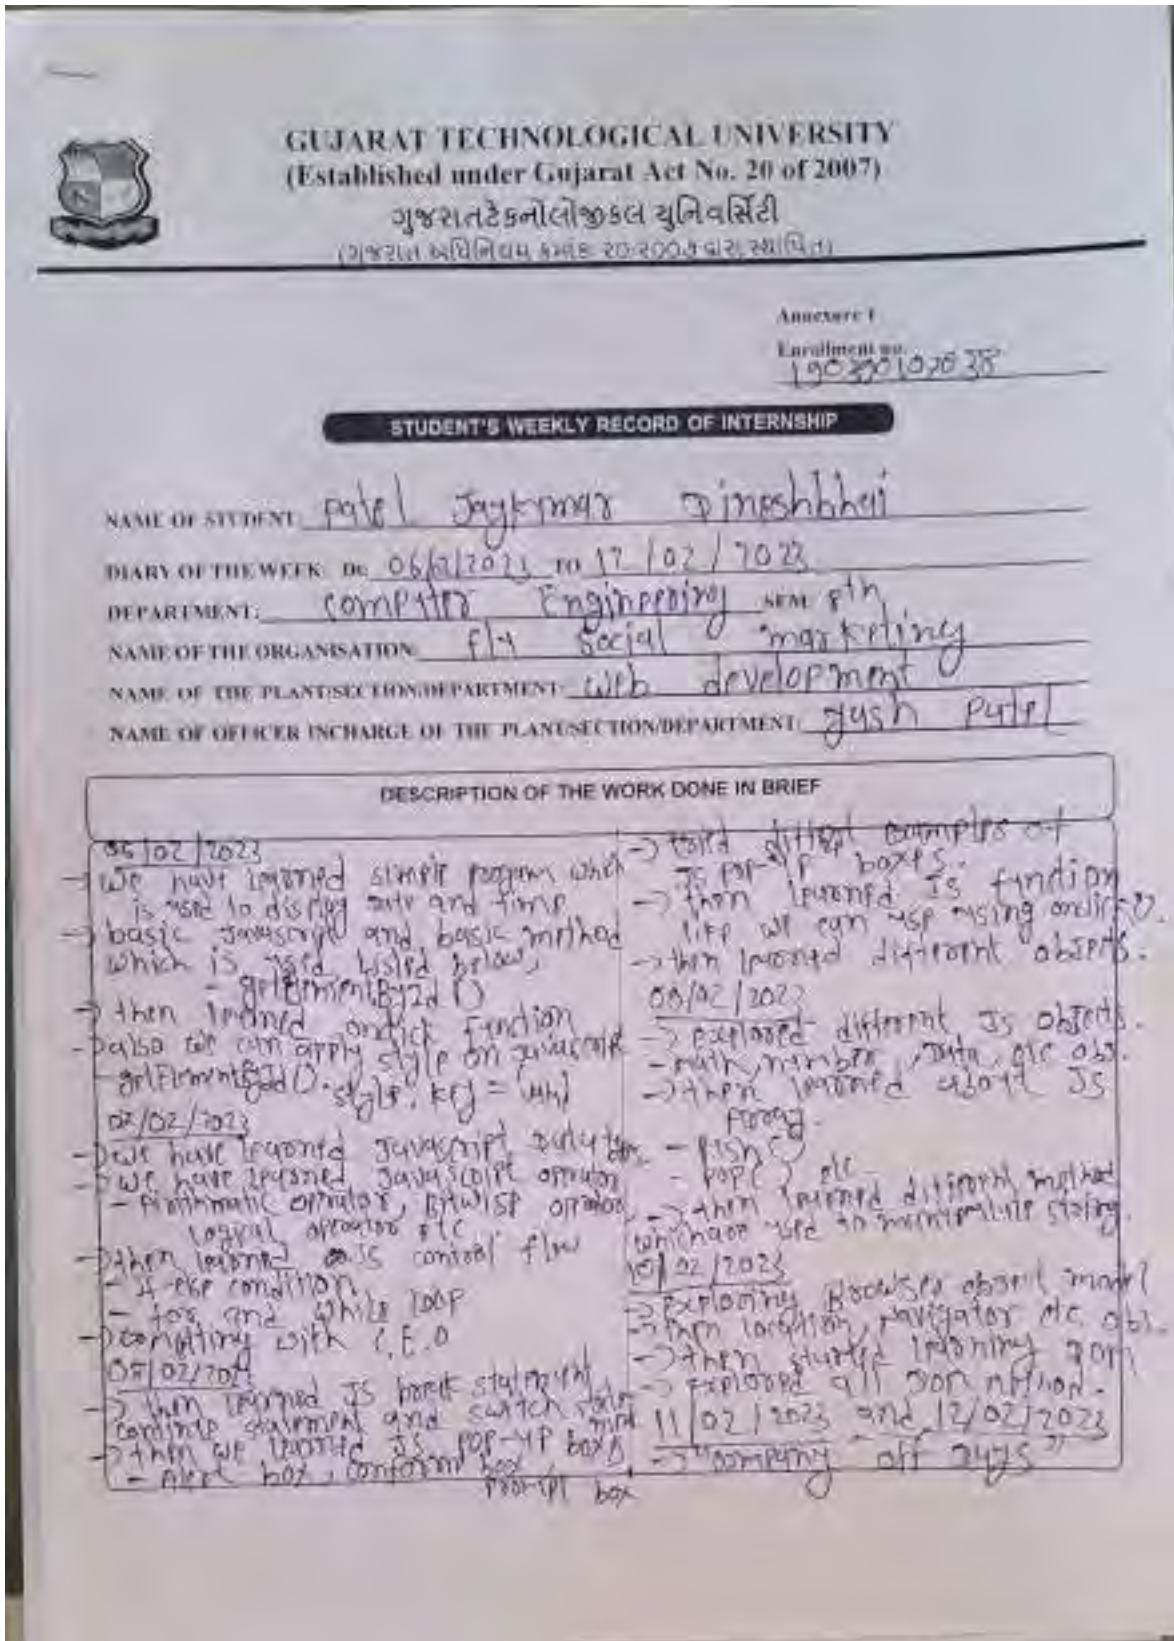 GUJARAT TECHNOLOGICAL UNIVERSITY
(Established under Gujarat Act No. 20 of 2007)
ગુજરાતટેકનોલોજીકલ યુનિવર્સિટી
(ગુજરાત અધિનિયમ ક્રમાંક: ૨૦/૨૦૦૭ દ્વારા સ્થાપિત)
Annexure 1
Enrollment no.
STUDENT'S WEEKLY RECORD OF INTERNSHIP
NAME OF STUDENT: Patel Jaykumar Dineshbhai
DIARY OF THE WEEK: Dt: 06/02/2023 TO 12/02/2023
DEPARTMENT: Computer Engineering SEM 8th
NAME OF THE ORGANISATION: Fly Social marketing
NAME OF THE PLANT/SECTION/DEPARTMENT: Web development
NAME OF OFFICER INCHARGE OF THE PLANT/SECTION/DEPARTMENT: yash Patel
DESCRIPTION OF THE WORK DONE IN BRIEF
06/02/2023
-> We have learned simple program which
is used to display date and time
-> basic Javascript and basic method
which is used listed below,
- getElementById()
-> then learned onclick function
-> also we can apply style on Javascript
- getElementById().style.key =
/02/2023
-> we have learned Javascript
-> we have learned Javascript operator
- Arithmatic oprator, Bitwise oprator
logical, oprator etc
-> then learned JS control flow
- If-else condition
- for and while loop
-> with C.E.O
-> then learned JS break statement
continue statement and switch
-> then we learned JS POP-UP boxes
- Alert box, conform box,
prompt box
-> tried diffrent examples of
JS pop-up boxes.
-> then learned JS function
like we can use using onclick().
-> then learned different objects.
/02/2023
-> explored different JS objects.
- math, number, etc obj.
-> then learned about JS
Array.
- push()
- pop() etc
-> then learned different method
which are used to string.
10/02/2023
-> Exploring Browser object model
-> then location, navigator etc obj.
-> then started learning DOM
-> explored all DOM method.
11/02/2023 and 12/02/2023
-> "company off days"